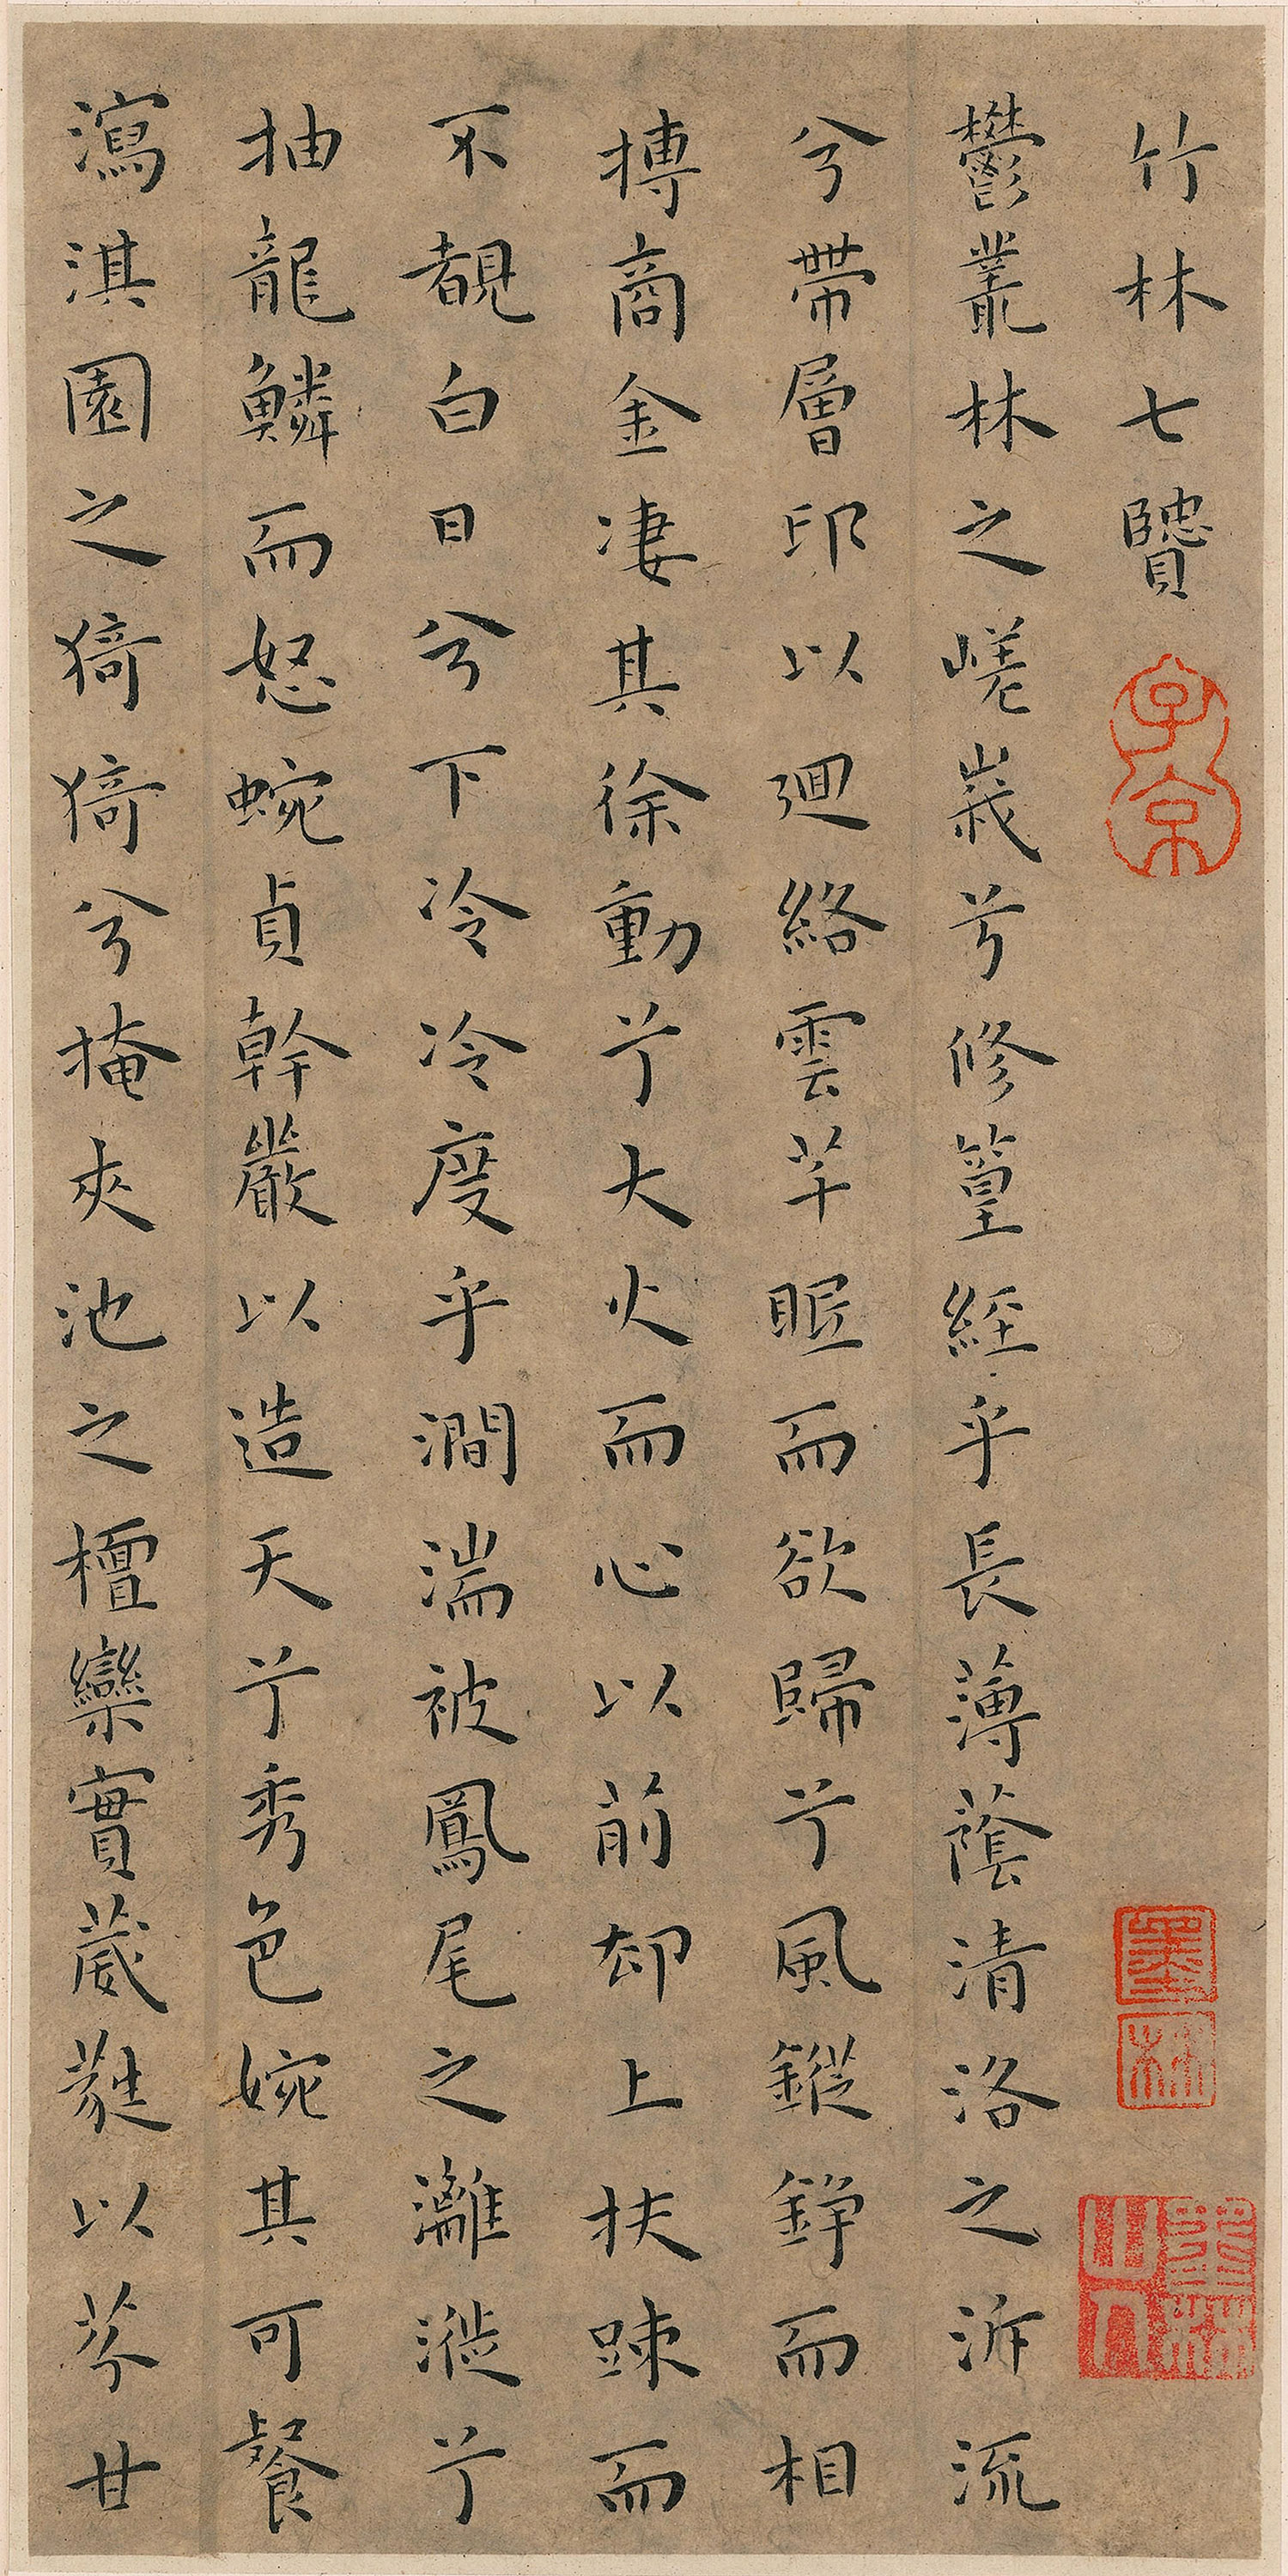 竹林七贒
子京
墨林
墨林山人
鬱叢林之嵯峩兮修篁經乎長薄蔭清洛之泝流
兮帶層邙以廻絡雲芊眠而欲歸兮風鏦錚而相
搏商金凄其徐動兮大火而心以前却上扶踈而
不覩白日兮下冷冷度乎澗湍被鳳尾之灕漇兮
抽龍鱗而怒蜿貞幹嚴以造天兮秀色婉其可餐
瀉淇園之猗猗兮掩夾池之檀欒實葳蕤以芬甘